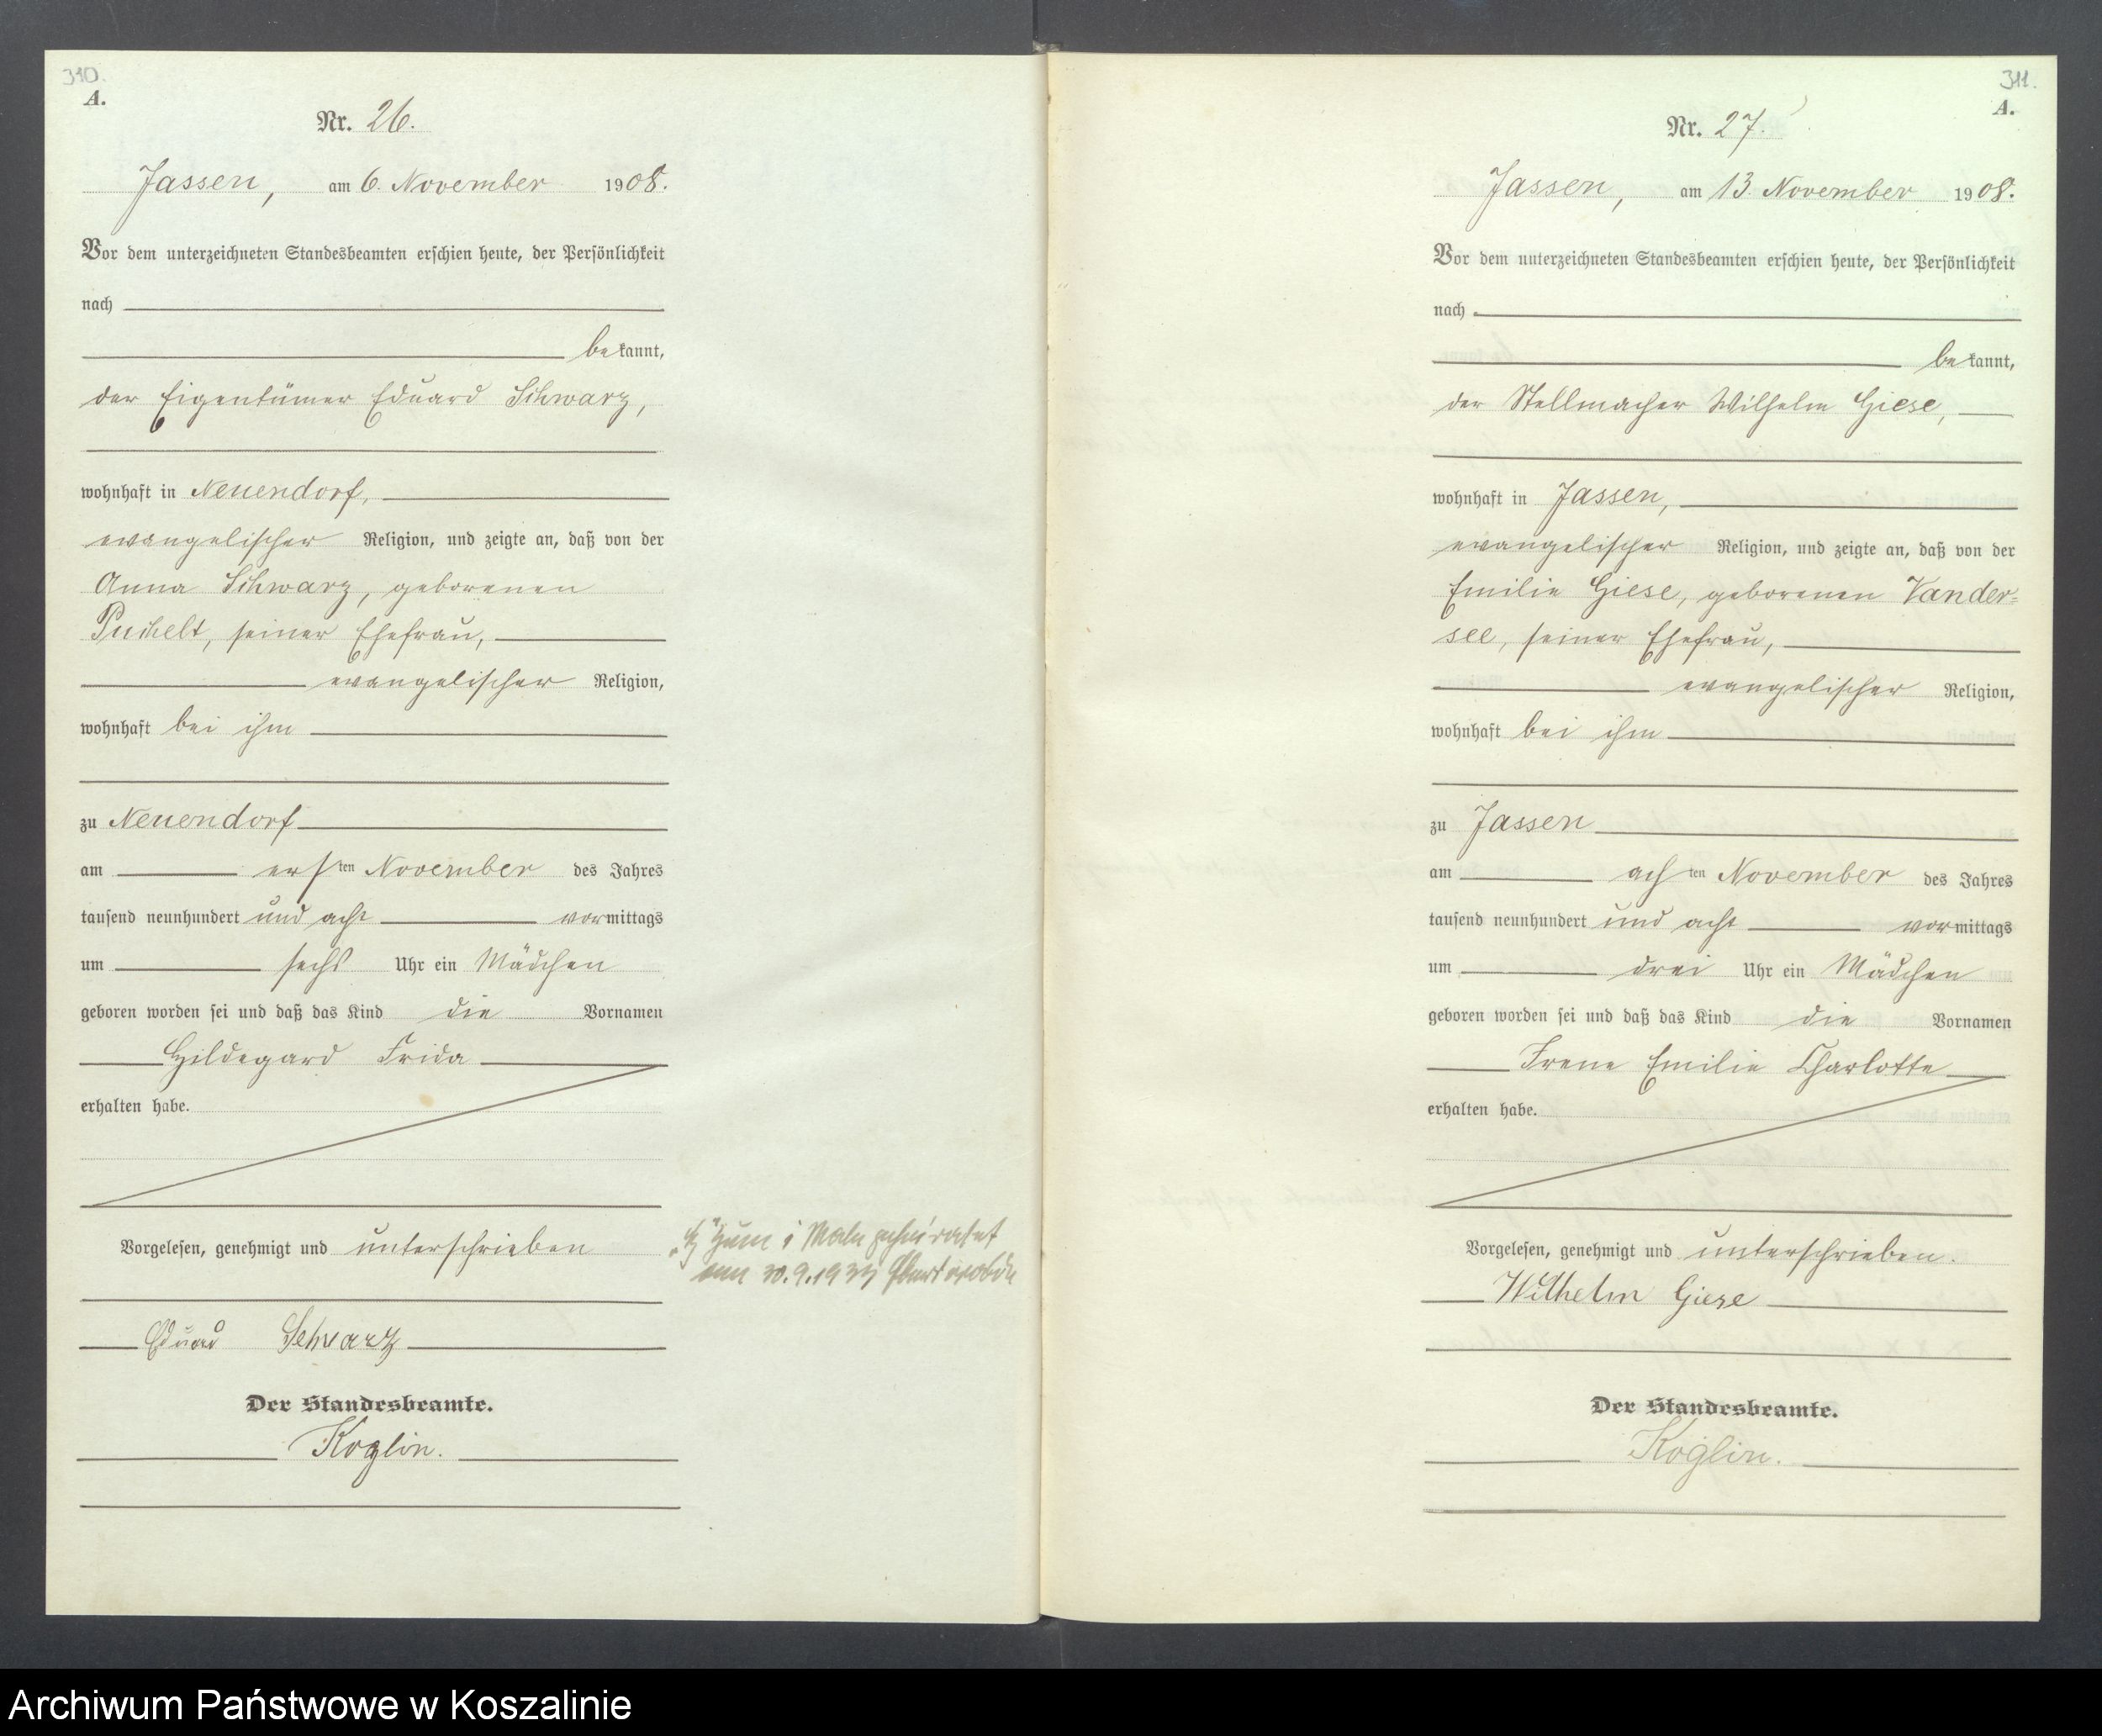 310.
A.
Nr. 26.
Jassen, am 6. November 1908.
Vor dem unterzeichneten Standesbeamten erschien heute, der Persönlichkeit
nach
bekannt,
der Eigentümer Eduard Schwarz,
wohnhaft in Neuendorf,
evangelischer Religion, und zeigte an, daß von der
Anna Schwarz, geborenen
Puchelt, seiner Ehefrau,
evangelischer Religion,
wohnhaft bei ihm
zu Neuendorf
am ersten November des Jahres
tausend neunhundert und acht vormittags
um sechs Uhr ein Mädchen
geboren worden sei und daß das Kind die Vornamen
Hildegard Frida
erhalten habe.
Vorgelesen, genehmigt und unterschrieben
Eduard Schwarz
Der Standesbeamte.
Koglin.
zum 1 Male geheiratet
am 30.9.193
311.
A.
Nr. 27.
Jassen, am 13. November 1908.
Vor dem unterzeichneten Standesbeamten erschien heute, der Persönlichkeit
nach
bekannt,
der Stellmacher Wilhelm Giese,
wohnhaft in Jassen,
evangelischer Religion, und zeigte an, daß von der
Emilie Giese, geborenen Vander=
see, seiner Ehefrau,
evangelischer Religion,
wohnhaft bei ihm
zu Jassen
am achten November des Jahres
tausend neunhundert und acht vormittags
um drei Uhr ein Mädchen
geboren worden sei und daß das Kind die Vornamen
Irene Emilie Charlotte
erhalten habe.
Vorgelesen, genehmigt und unterschrieben.
Wilhelm Giese
Der Standesbeamte.
Koglin.
Archiwum Państwowe w Koszalinie